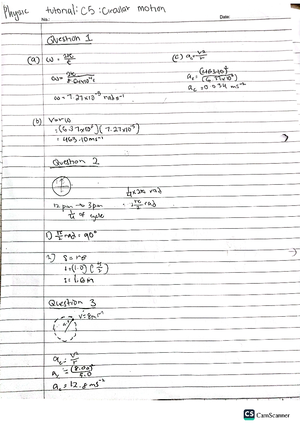 Physic tutorial: C5: Circular motion
No.: Date:
Question 1
(a) ω = 2π/T
ω = 2π/8.64×10⁴
ω = 7.27×10⁻⁵ rad s⁻¹
(c) ac = v²/r
ac = (463.10)²/(6.37×10⁶)
ac = 0.034 ms⁻²
(b) v = rω
= (6.37×10⁶)(7.27×10⁻⁵)
= 463.10 ms⁻¹
Question 2
12 pm → 3 pm
1/4 of cycle
1/4 × 2π rad
= π/2 rad
1) π/2 rad = 90°
2) S = rθ
S = (1.0)(π/2)
S = 1.6 m
Question 3
v = 8 ms⁻¹
ac = v²/r
ac = (8.00)²/5.0
ac = 12.8 ms⁻²
CS CamScanner